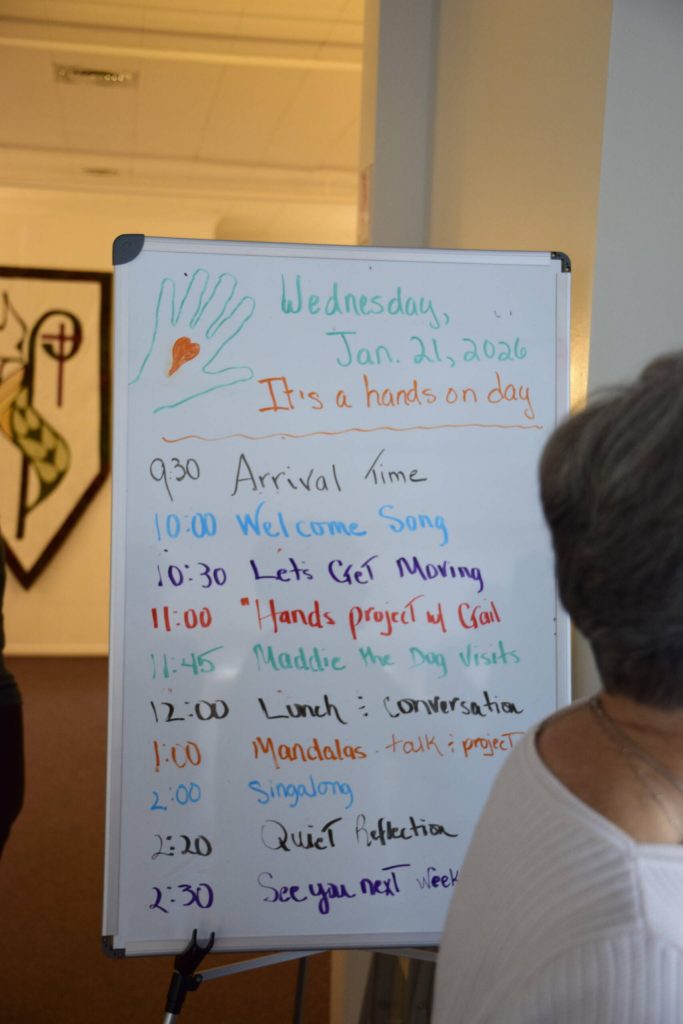 Wednesday,
Jan. 21, 2026
It's a hands on day
9:30 Arrival Time
10:00 Welcome Song
10:30 Let's Get Moving
11:00 "Hands project w/ Gail
11:45 Maddie the Dog Visits
12:00 Lunch & conversation
1:00 Mandalas talk & project
2:00 Singalong
2:20 Quiet Reflection
2:30 See you next week